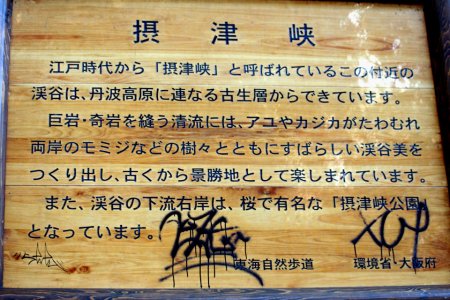 摂津峡
江戸時代から「摂津峡」と呼ばれているこの付近の
渓谷は、丹波高原に連なる古生層からできています。
巨岩・奇岩を縫う清流には、アユやカジカがたわむれ
両岸のモミジなどの樹々とともにすばらしい渓谷美を
つくり出し、古くから景勝地として楽しまれています。
また、渓谷の下流右岸は、桜で有名な「摂津峡公園」
となっています。
東海自然歩道 環境省・大阪府